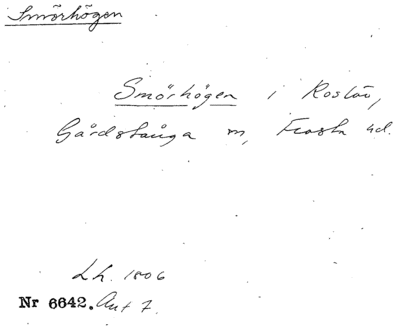 Smörhögen
Smörhögen i Roslöv,
Gårdstånga m, Frosta hd.
Lh. 1806
Nr 6642. Ant 7.